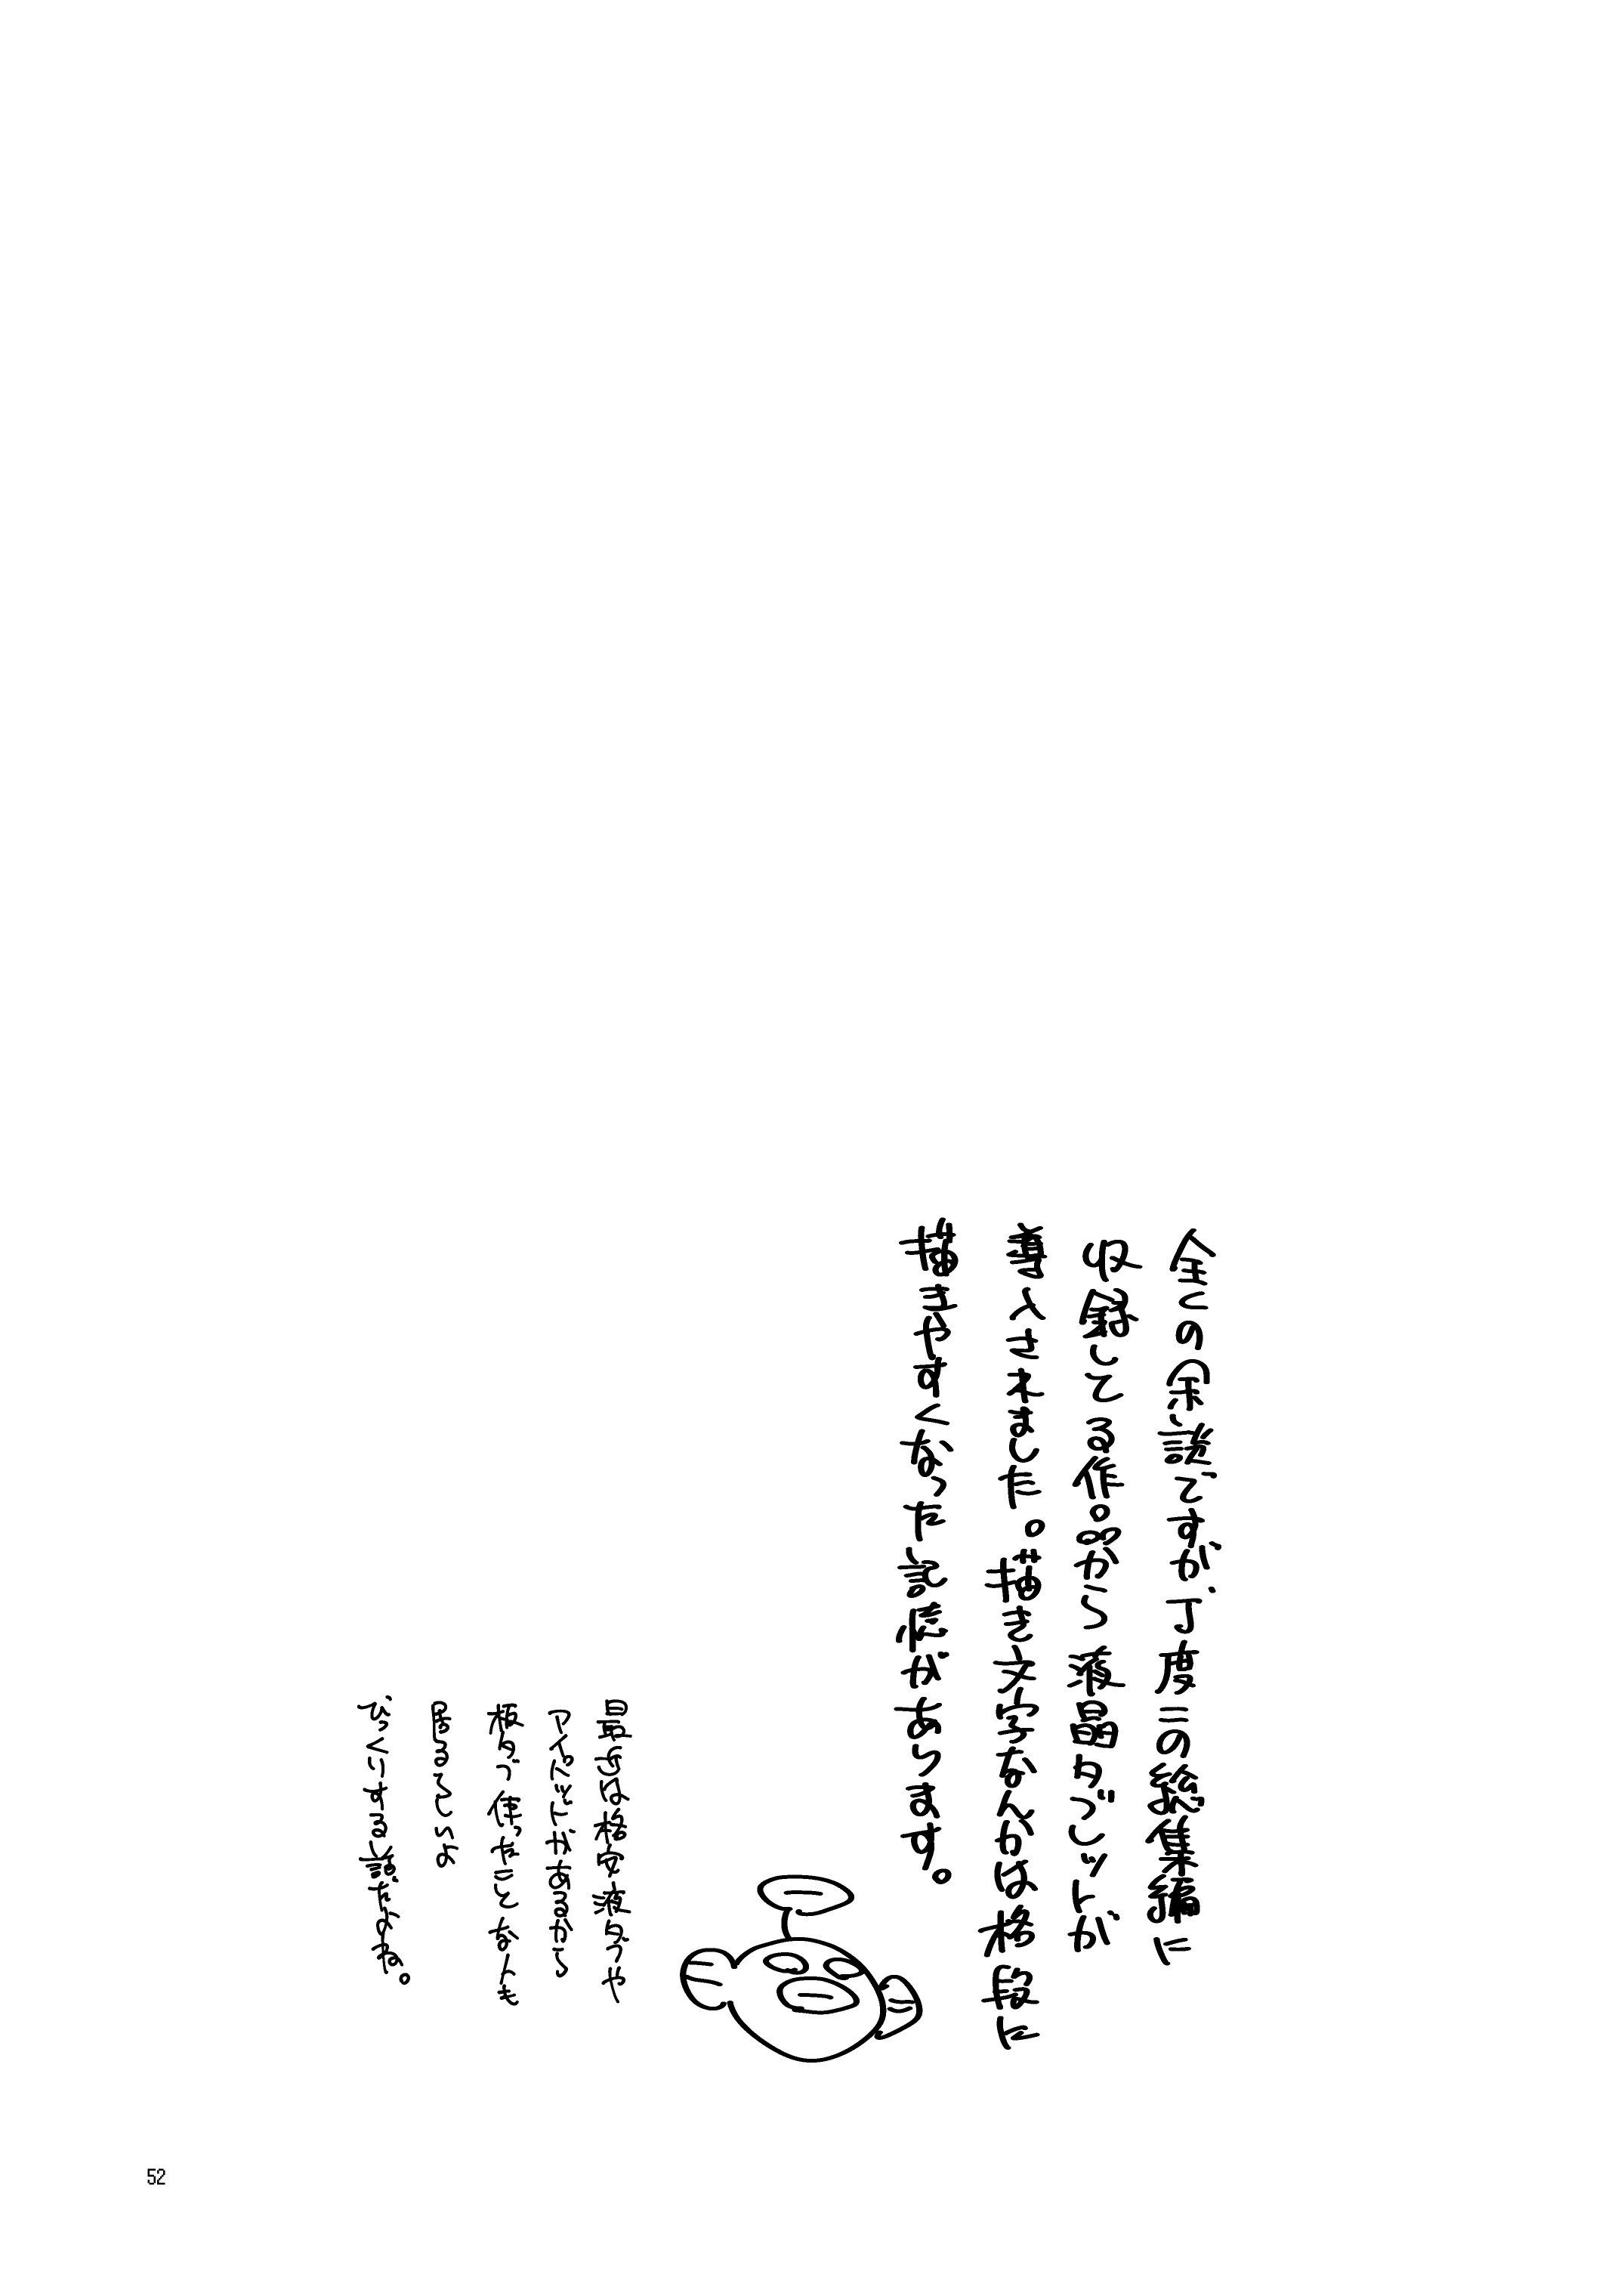 全くの余談ですが、丁度この総集編に
収録してる作品から液晶タブレットが
導入されました。描き文字なんかは格段に
描きやすくなった記憶があります。
最近は格安液タブや
アイパッドがあるから
板タブ使ったことない人も
居るらしいよ
びっくりする話だよね。
52